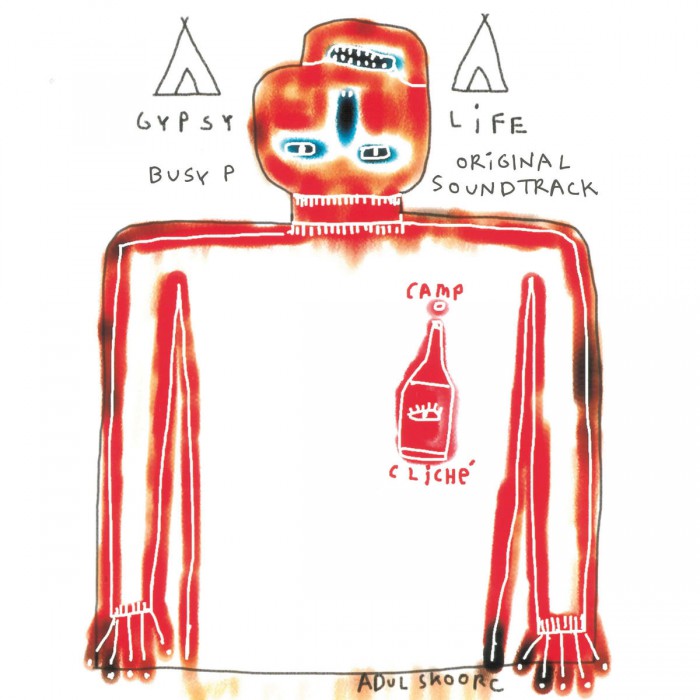 GYPSY LIFE
BUSY P
ORIGINAL
SOUNDTRACK
CAMP
CLICHÉ
ADUL SKOORC